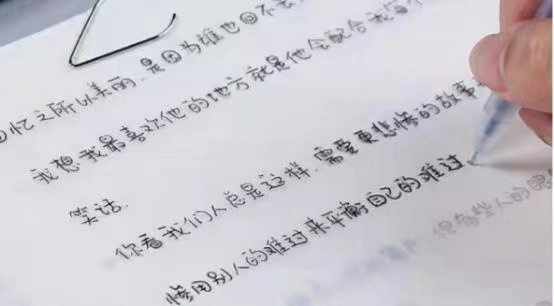 回忆之所以美丽.是因为谁也回不去
我想我最喜欢他的地方就是他会配合我
笑话.
你看我们人总是这样.需要更悲惨的故事
惨用别人的难过来平衡自己的难过.
但有些人的